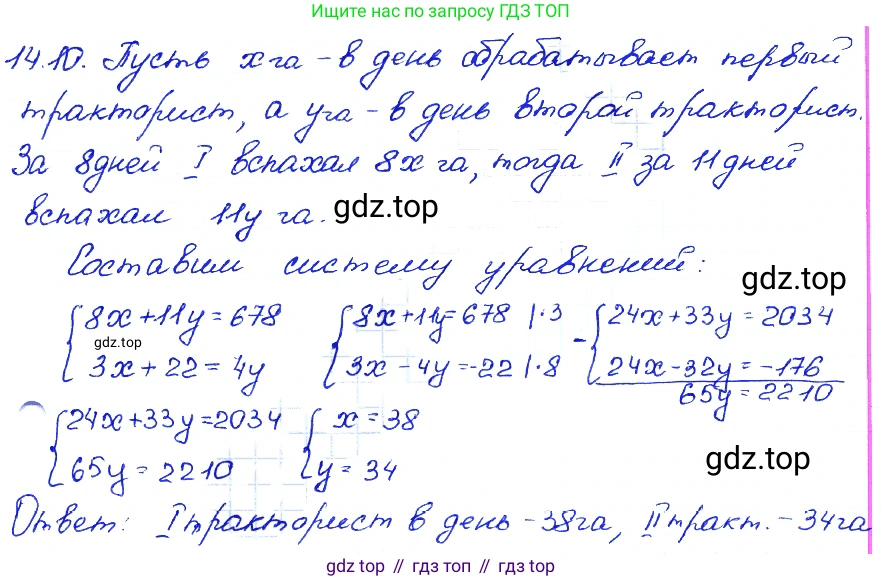 Ищите нас по запросу ГДЗ ТОП
14.10. Пусть x га - в день обрабатывает первый
тракторист, а y га - в день второй тракторист.
За 8 дней I вспахал 8x га, тогда II за 11 дней
вспахал 11y га.
gdz.top
Составим систему уравнений:
gdz.top
{8x+11y=678 {8x+11y=678 |·3 - {24x+33y=2034
gdz.top
3x+22=4y 3x-4y=-22 |·8 24x-32y=-176
65y=2210
{24x+33y=2034 {x=38
65y=2210 y=34
gdz.top
Ответ: I тракторист в день - 38га, II тракт. - 34га
gdz.top // гдз топ // гдз.топ